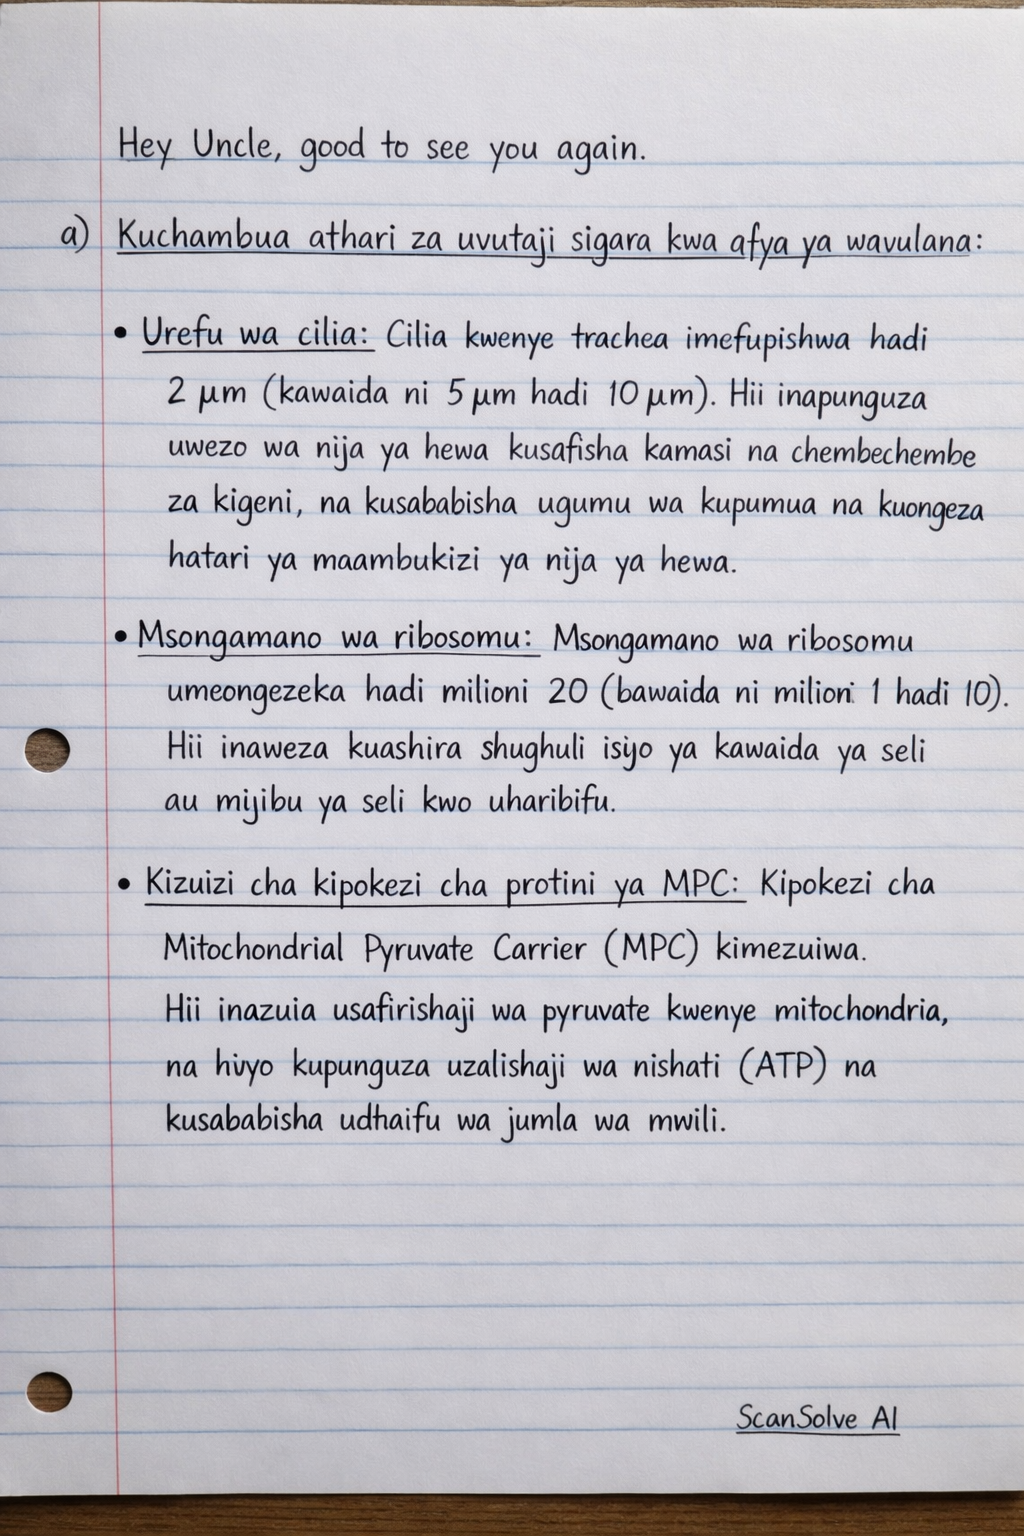 Hey Uncle, good to see you again.
a) Kuchambua athari za uvutaji sigara kwa afya ya wavulana:
• Urefu wa cilia: Cilia kwenye trachea imefupishwa hadi
2 μm (kawaida ni 5 μm hadi 10 μm). Hii inapunguza
uwezo wa nija ya hewa kusafisha kamasi na chembechembe
za kigeni, na kusababisha ugumu wa kupumua na kuongeza
hatari ya maambukizi ya nija ya hewa.
• Msongamano wa ribosomu: Msongamano wa ribosomu
umeongezeka hadi milioni 20 (bawaida ni milioni 1 hadi 10).
Hii inaweza kuashira shughuli isiyo ya kawaida ya seli
au mijibu ya seli kwo uharibifu.
• Kizuizi cha kipokezi cha protini ya MPC: Kipokezi cha
Mitochondrial Pyruvate Carrier (MPC) kimezuiwa.
Hii inazuia usafirishaji wa pyruvate kwenye mitochondria,
na hivyo kupunguza uzalishaji wa nishati (ATP) na
kusababisha udhaifu wa jumla wa mwili.
ScanSolve AI